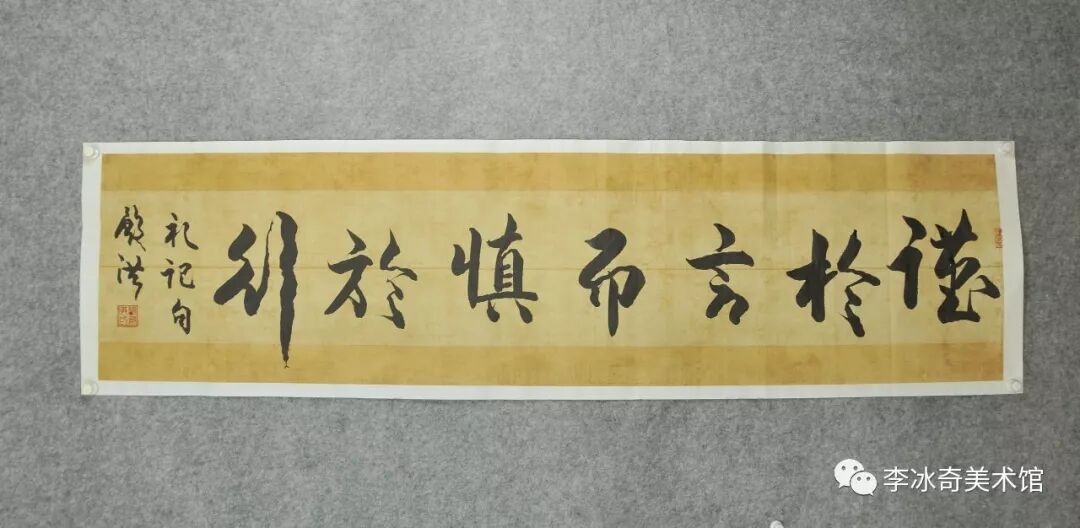 謹於言而慎於行
礼记句
李冰奇美术馆